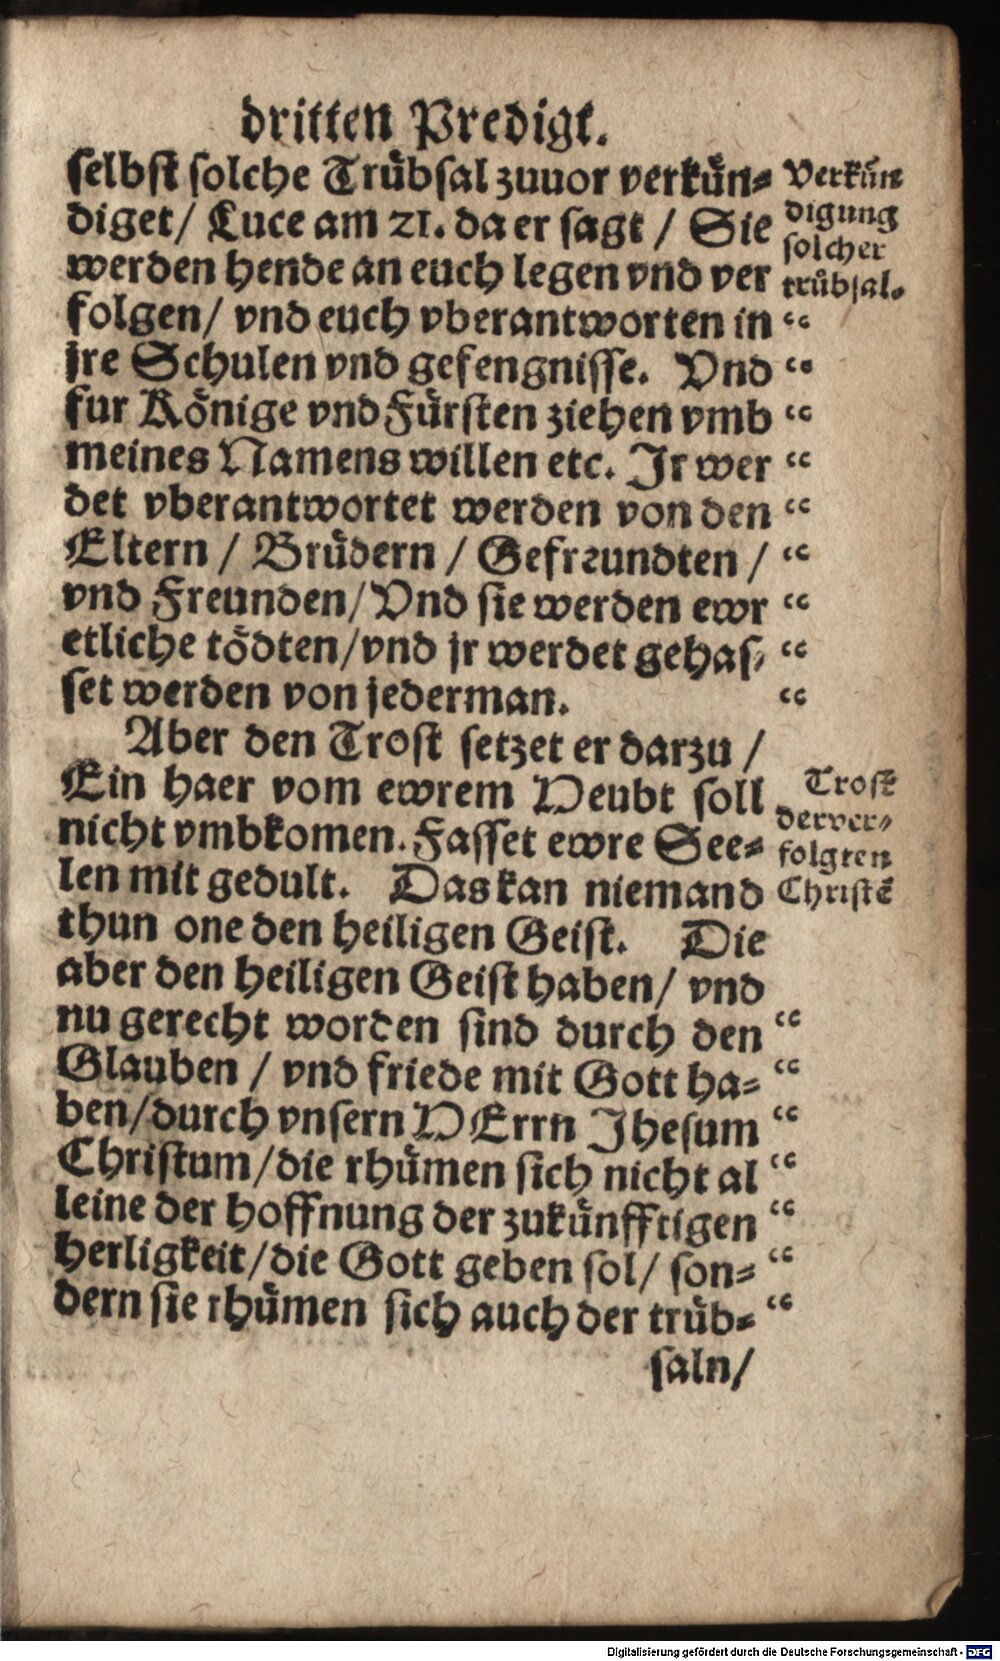 dritten Predigt.
selbst solche Trübsal zuuor verkün⸗
diget/ Luce am 21. da er sagt / Sie
werden hende an euch legen vnd ver
folgen/ vnd euch vberantworten in “
jre Schulen vnd gefengnisse. Vnd “
fur Könige vnd Fürsten ziehen vmb “
meines Namens willen etc. Jr wer “
det vberantwortet werden von den “
Eltern / Brüdern / Gefreundten / “
vnd Freunden/ Vnd sie werden ewr “
etliche tödten/ vnd jr werdet gehas⸗ “
set werden von jederman. “
Verkün
digung
solcher
trübsal.
Aber den Trost setzet er darzu /
Ein haer vom ewrem Heubt soll
nicht vmbkomen. Fasset ewre See⸗
len mit gedult. Das kan niemand
thun one den heiligen Geist. Die
aber den heiligen Geist haben/ vnd
nu gerecht worden sind durch den “
Glauben / vnd friede mit Gott ha⸗ “
ben/ durch vnsern HErrn Jhesum “
Christum/ die rhümen sich nicht al “
leine der hoffnung der zukünfftigen “
herligkeit/ die Gott geben sol/ son⸗ “
dern sie rhümen sich auch der trüb⸗ “
saln/
Trost
der ver⸗
folgten
Christē
Digitalisierung gefördert durch die Deutsche Forschungsgemeinschaft - DFG